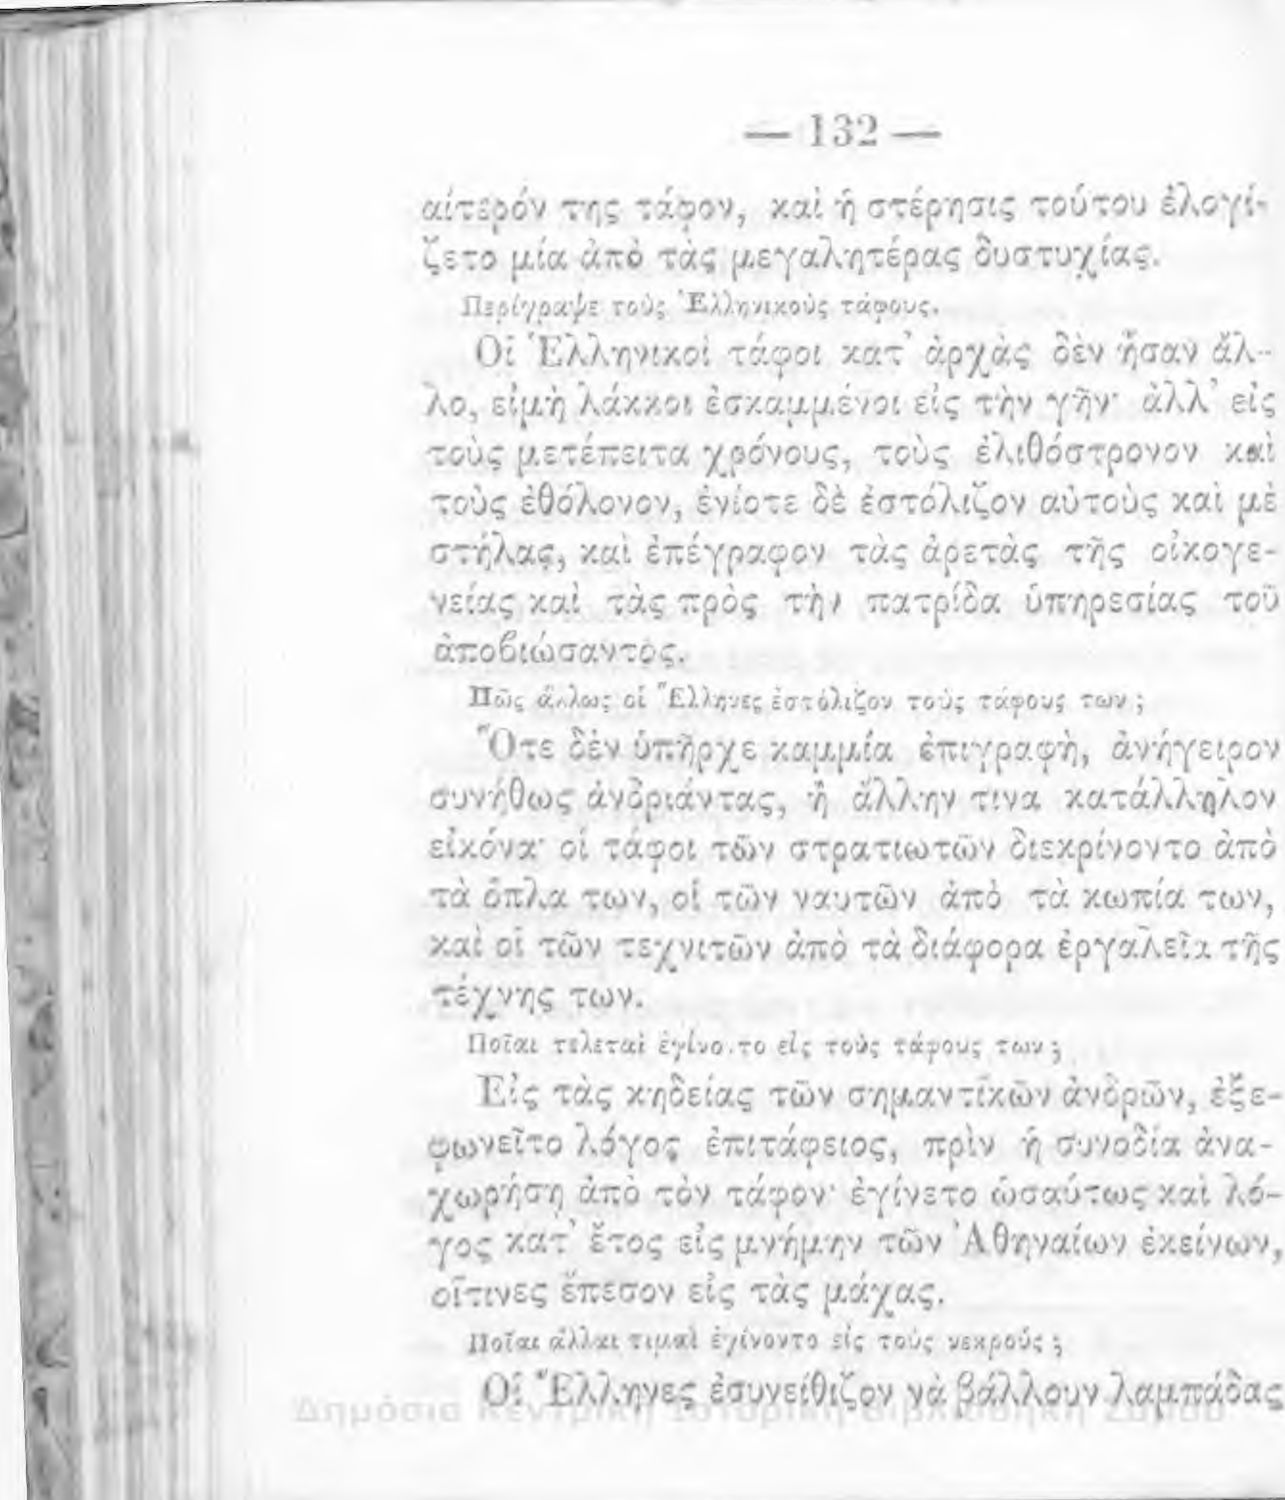 — 132 —
αίτερόν της τάφον, καὶ ἡ στέρησις τούτου ἐλογί-
ζετο μία ἀπὸ τὰς μεγαλητέρας δυστυχίας.
Περίγραψε τοὺς Ἑλληνικοὺς τάφους.
Οἱ Ἑλληνικοὶ τάφοι κατ' ἀρχὰς δὲν ἦσαν ἄλ-
λο, εἰμὴ λάκκοι ἐσκαμμένοι εἰς τὴν γῆν· ἀλλ' εἰς
τοὺς μετέπειτα χρόνους, τοὺς ἐλιθόστρονον καὶ
τοὺς ἐθόλονον, ἐνίοτε δὲ ἐστόλιζον αὐτοὺς καὶ μὲ
στήλας, καὶ ἐπέγραφον τὰς ἀρετὰς τῆς οἰκογε-
νείας καὶ τὰς πρὸς τὴν πατρίδα ὑπηρεσίας τοῦ
ἀποβιώσαντος.
Πῶς ἄλλως οἱ Ἕλληνες ἐστόλιζον τοὺς τάφους των;
Ὅτε δὲν ὑπῆρχε καμμία ἐπιγραφὴ, ἀνήγειρον
συνήθως ἀνδριάντας, ἢ ἄλλην τινα κατάλληλον
εἰκόνα· οἱ τάφοι τῶν στρατιωτῶν διεκρίνοντο ἀπὸ
τὰ ὅπλα των, οἱ τῶν ναυτῶν ἀπὸ τὰ κωπία των,
καὶ οἱ τῶν τεχνιτῶν ἀπὸ τὰ διάφορα ἐργαλεῖα τῆς
τέχνης των.
Ποῖαι τελεταὶ ἐγίνο.το εἰς τοὺς τάφους των;
Εἰς τὰς κηδείας τῶν σημαντικῶν ἀνδρῶν, ἐξε-
φωνεῖτο λόγος ἐπιτάφειος, πρὶν ἡ συνοδία ἀνα-
χωρήσῃ ἀπὸ τὸν τάφον· ἐγίνετο ὡσαύτως καὶ λό-
γος κατ' ἔτος εἰς μνήμην τῶν Ἀθηναίων ἐκείνων,
οἵτινες ἔπεσον εἰς τὰς μάχας.
Ποῖαι ἄλλαι τιμαὶ ἐγίνοντο εἰς τοὺς νεκρούς;
Οἱ Ἕλληνες ἐσυνείθιζον νὰ βάλλουν λαμπάδας
Δημόσια Κεντρική Ιστορική Βιβλιοθήκη Σάμου